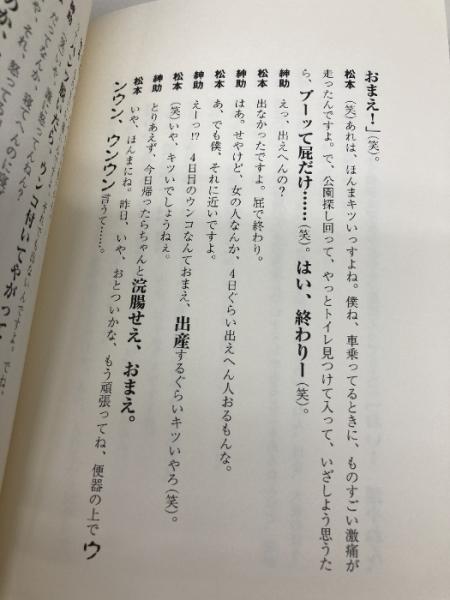 おまえ！」(笑)。
松本　(笑)あれは、ほんまキツいっすよね。僕ね、車乗ってるときに、ものすごい激痛が
走ったんですよ。で、公園探し回って、やっとトイレ見つけて入って、いざしよう思うた
ら、ブーッて屁だけ……(笑)。はい、終わりー(笑)。
紳助　えっ、出えへんの？
松本　出なかったですよ。屁で終わり。
紳助　はぁ。せやけど、女の人なんか、4日ぐらい出えへん人おるもんな。
松本　あ、でも僕、それに近いですよ。
紳助　えーっ!?　4日目のウンコなんておまえ、出産するぐらいキツいやろ(笑)。
松本　(笑)いや、キツいでしょうねぇ。
紳助　とりあえず、今日帰ったらちゃんと浣腸せえ、おまえ。
松本　いや、ほんまにね。昨日、いや、おとついかな、もう頑張ってね、便器の上でウ
ンウン、ウンウン言うて……。